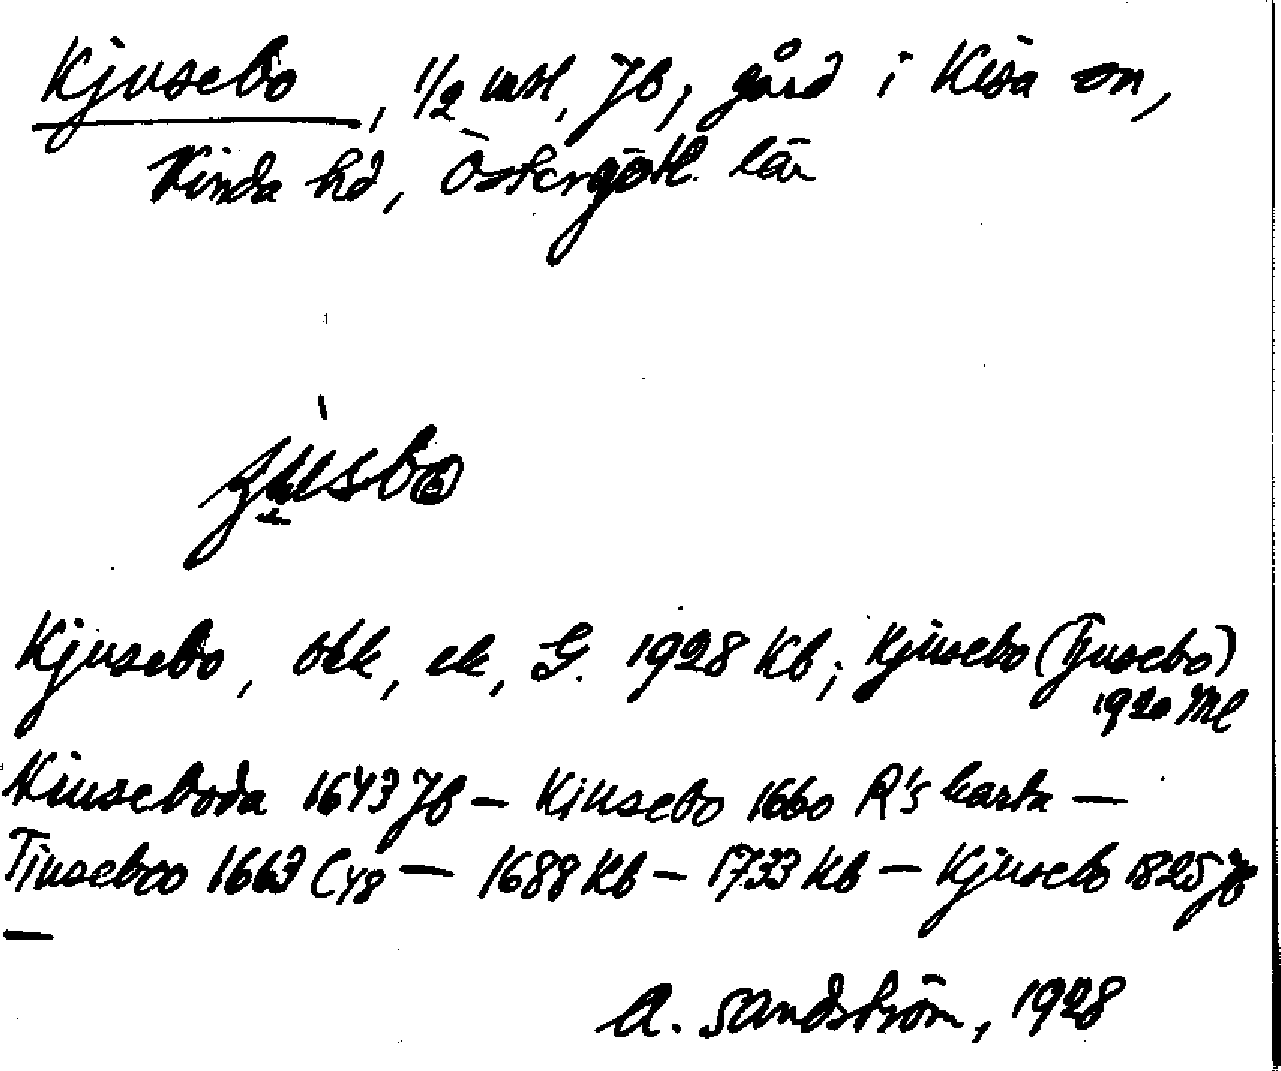 Kjusebo, 1/2 mtl, Jb, gård i Kisa sn,
Kinda hd, Östergötl. län
Kjusebo, bbl, ek, G. 1928 Kb; Kjusebo (Tjusebo)
1920 Ml
Kiuseboda 1643 Jb – Kiusebo 1660 R's karta –
Tiuseboo 1663 C48 – 1688 Kb – 1733 Kb – Kjusebo 1825 Jb
–
A. Sandström, 1928